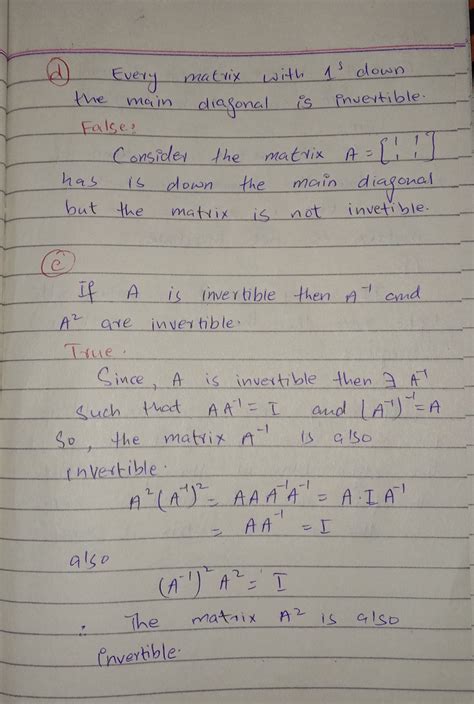 (d) Every matrix with 1ˢ down
the main diagonal is invertible.
False:
Consider the matrix A = [1 1; 1 1]
has 1s down the main diagonal
but the matrix is not invetible.
(e)
If A is invertible then A⁻¹ and
A² are invertible.
True.
Since, A is invertible then ∃ A⁻¹
such that AA⁻¹ = I and (A⁻¹)⁻¹ = A
So, the matrix A⁻¹ is also
invertible.
A²(A⁻¹)² = AAA⁻¹A⁻¹ = A.IA⁻¹
= AA⁻¹ = I
also
(A⁻¹)²A² = I
∴ The matrix A² is also
invertible.